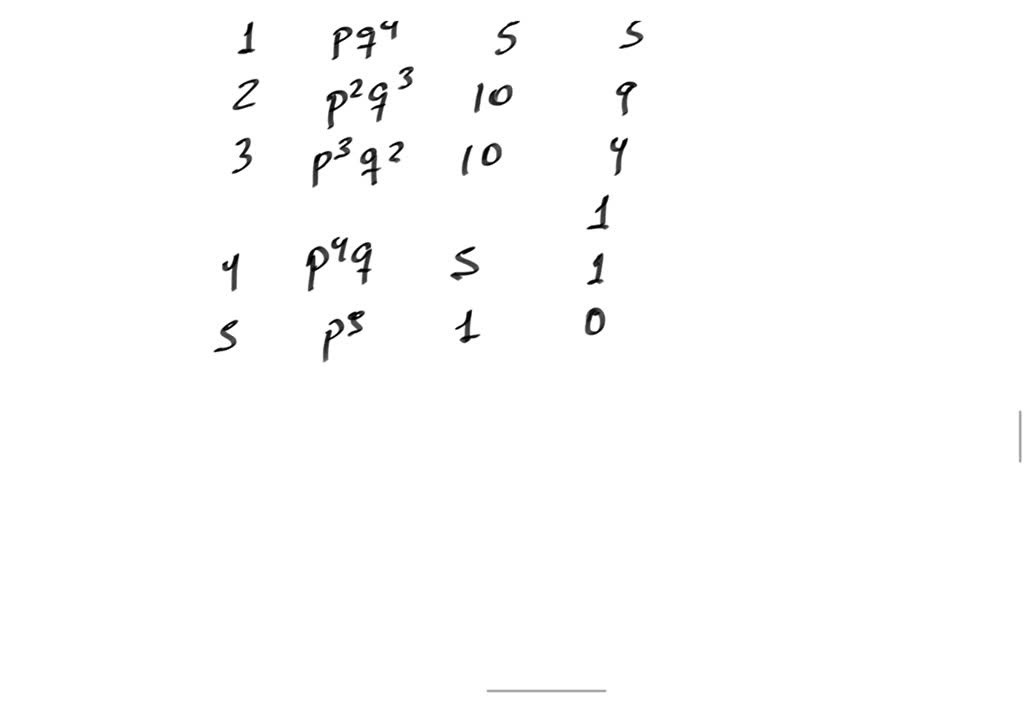 1 pq⁴ 5 5
2 p²q³ 10 9
3 p³q² 10 4
1
4 p⁴q 5 1
5 p⁵ 1 0